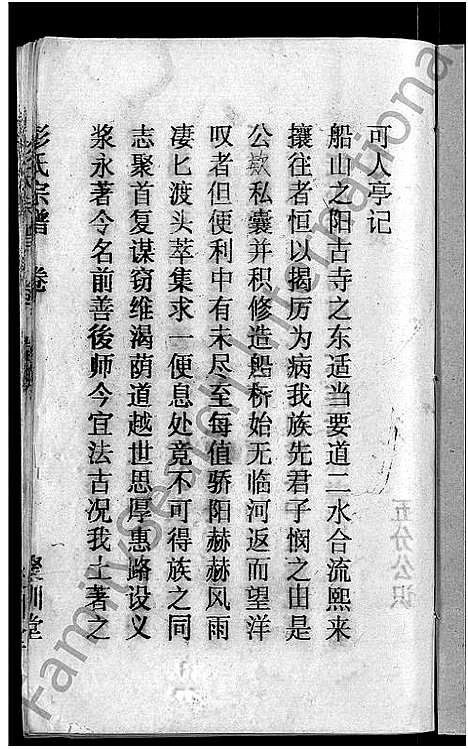 可人亭记
船山之阳古寺之东适当要道二水合流熙来
攘往者恒以揭厉为病我族先君子悯之由是
公欵私囊并积修造船桥始无临河返而望洋
叹者但便利中有未尽至每值骄阳赫赫风雨
凄匕渡头萃集求一便息处竟不可得族之同
志聚首复谋窃维渴荫道越世思厚惠路设义
浆永著令名前善後师今宜法古况我土著之
彭氏宗谱 卷
五分公识
FamilySearch International